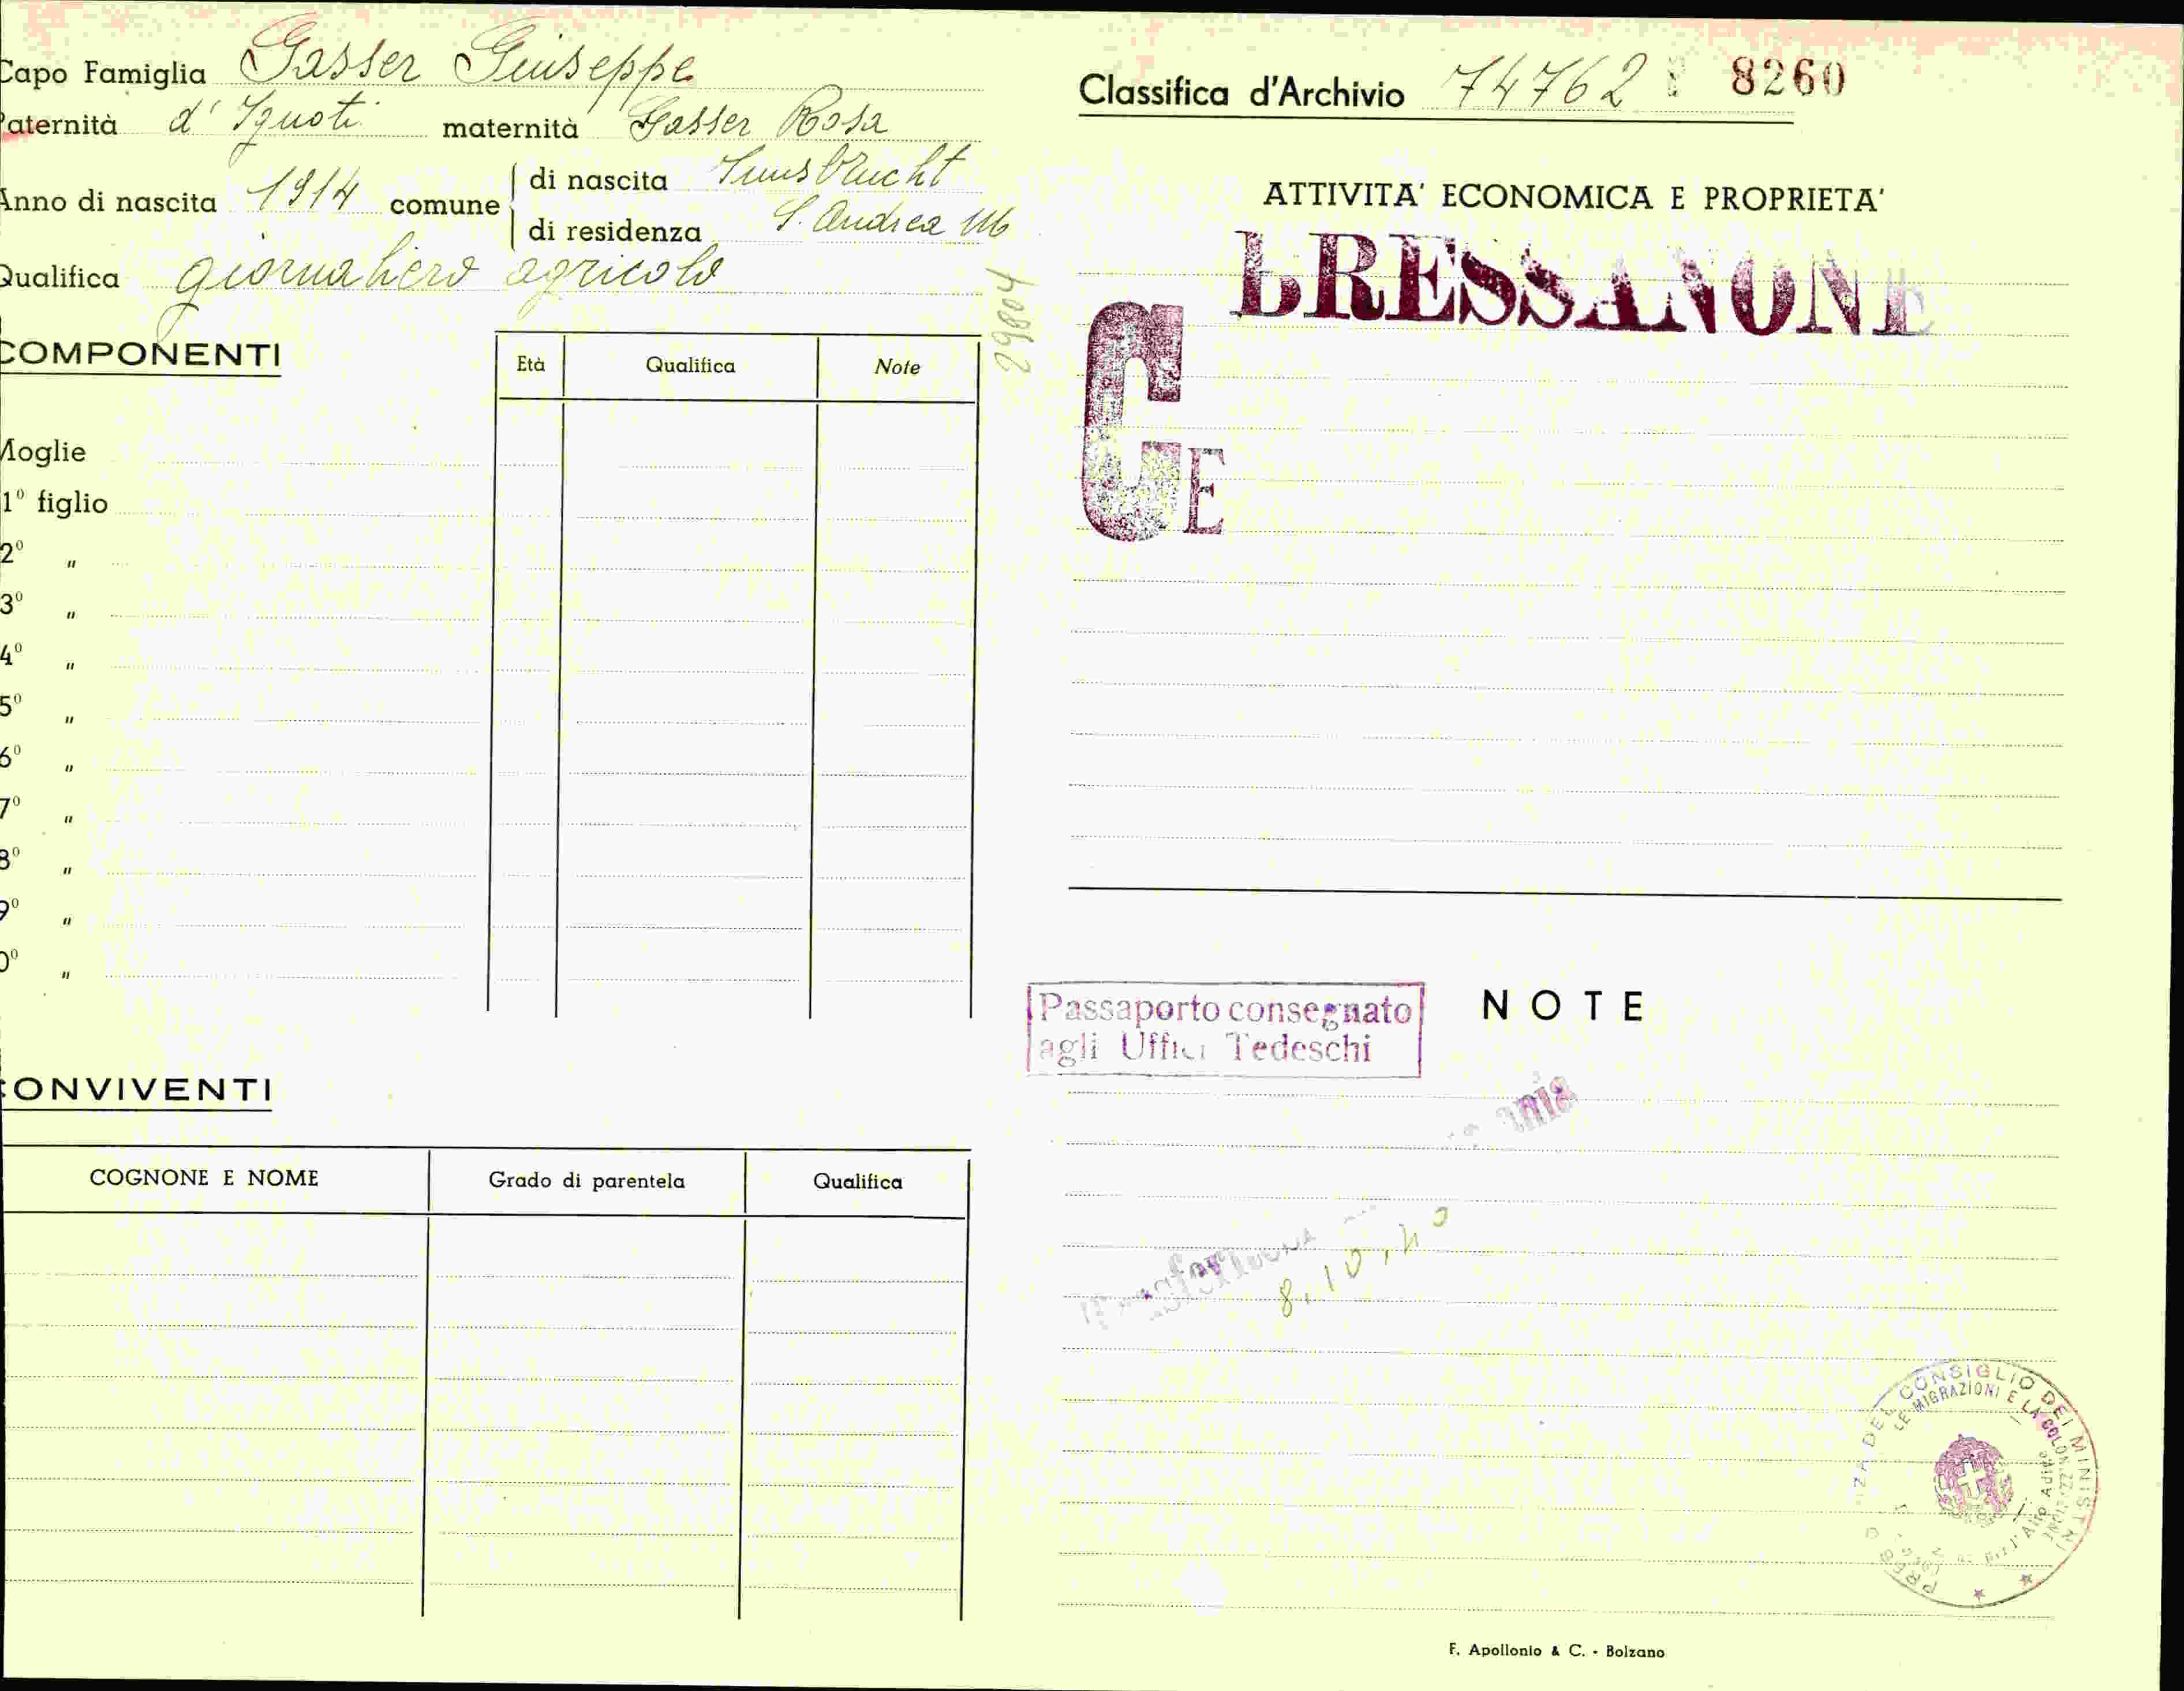 Capo Famiglia Gasser Giuseppe
Paternità d' Ignoti maternità Gasser Rosa
Anno di nascita 1914 comune di nascita Innsbrucht
di residenza S. Andrea M
Qualifica giornaliero agricolo
29804
COMPONENTI
Età Qualifica Note
Moglie
1º figlio
2º "
3º "
4º "
5º "
6º "
7º "
8º "
9º "
0º "
CONVIVENTI
COGNONE E NOME Grado di parentela Qualifica
Classifica d'Archivio 74762 8260
ATTIVITA' ECONOMICA E PROPRIETA'
BRESSANONE
G E
Passaporto consegnato
agli Uffici Tedeschi
NOTE
8.10.40
CONSIGLIO DEI MINISTRI
LE MIGRAZIONI E LA COLONIZZAZIONE
per l'Alto Adige
F. Apollonio & C. - Bolzano